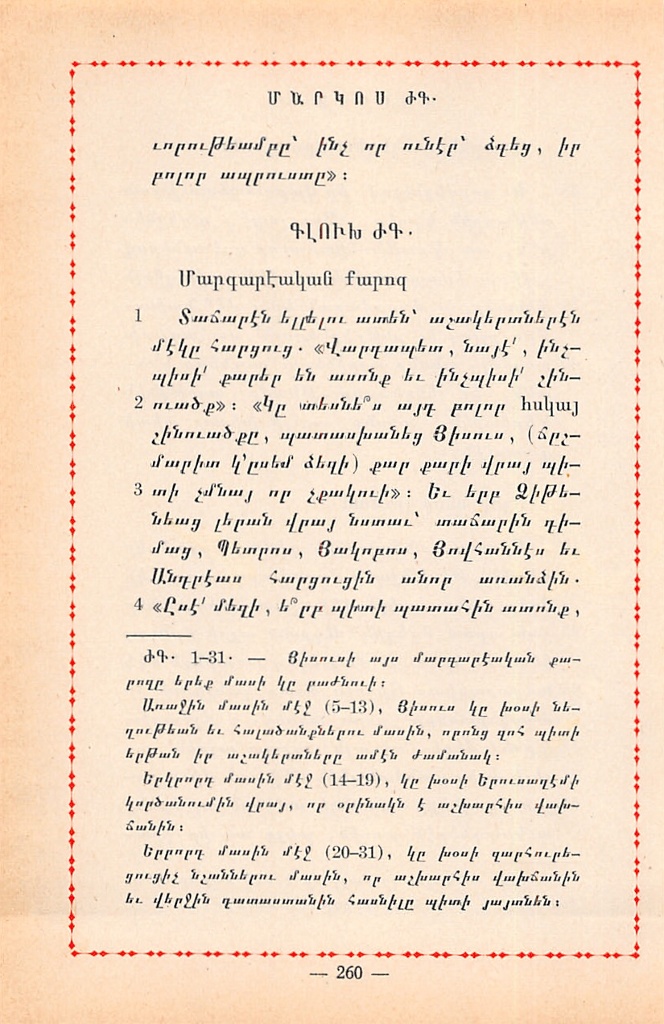 ՄԱՐԿՈՍ ԺԳ.
ւորութեամբը՝ ինչ որ ունէր՝ ձգեց, իր
բոլոր ապրուստը»։
ԳԼՈՒԽ ԺԳ.
Մարգարէական քարոզ
1 Տաճարէն ելլելու ատեն՝ աշակերտներէն
մէկը հարցուց. «Վարդապետ, նայէ՛, ինչ-
պիսի՛ քարեր են ասոնք եւ ինչպիսի՛ շին-
2 ուածք»։ «Կը տեսնե՞ս այդ բոլոր հսկայ
շինուածքը, պատասխանեց Յիսուս, (ճըշ-
մարիտ կ՚ըսեմ ձեզի) քար քարի վրայ պի-
3 տի չմնայ որ չքակուի»։ Եւ երբ Ձիթե-
նեաց լերան վրայ նստաւ՝ տաճարին դի-
մաց, Պետրոս, Յակոբոս, Յովհաննէս եւ
Անդրէաս հարցուցին անոր առանձին.
4 «Ըսէ՛ մեզի, ե՞րբ պիտի պատահին ատոնք,
ԺԳ. 1–31. — Յիսուսի այս մարգարէական քա-
րոզը երեք մասի կը բաժնուի։
Առաջին մասին մէջ (5–13), Յիսուս կը խօսի նե-
ղութեան եւ հալածանքներու մասին, որոնց զոհ պիտի
երթան իր աշակերտները ամէն ժամանակ։
Երկրորդ մասին մէջ (14–19), կը խօսի Երուսաղէմի
կործանումին վրայ, որ օրինակն է աշխարհիս վախ-
ճանին։
Երրորդ մասին մէջ (20–31), կը խօսի զարհուրե-
ցուցիչ նշաններու մասին, որ աշխարհիս վախճանին
եւ վերջին դատաստանին հասնիլը պիտի յայտնեն։
— 260 —